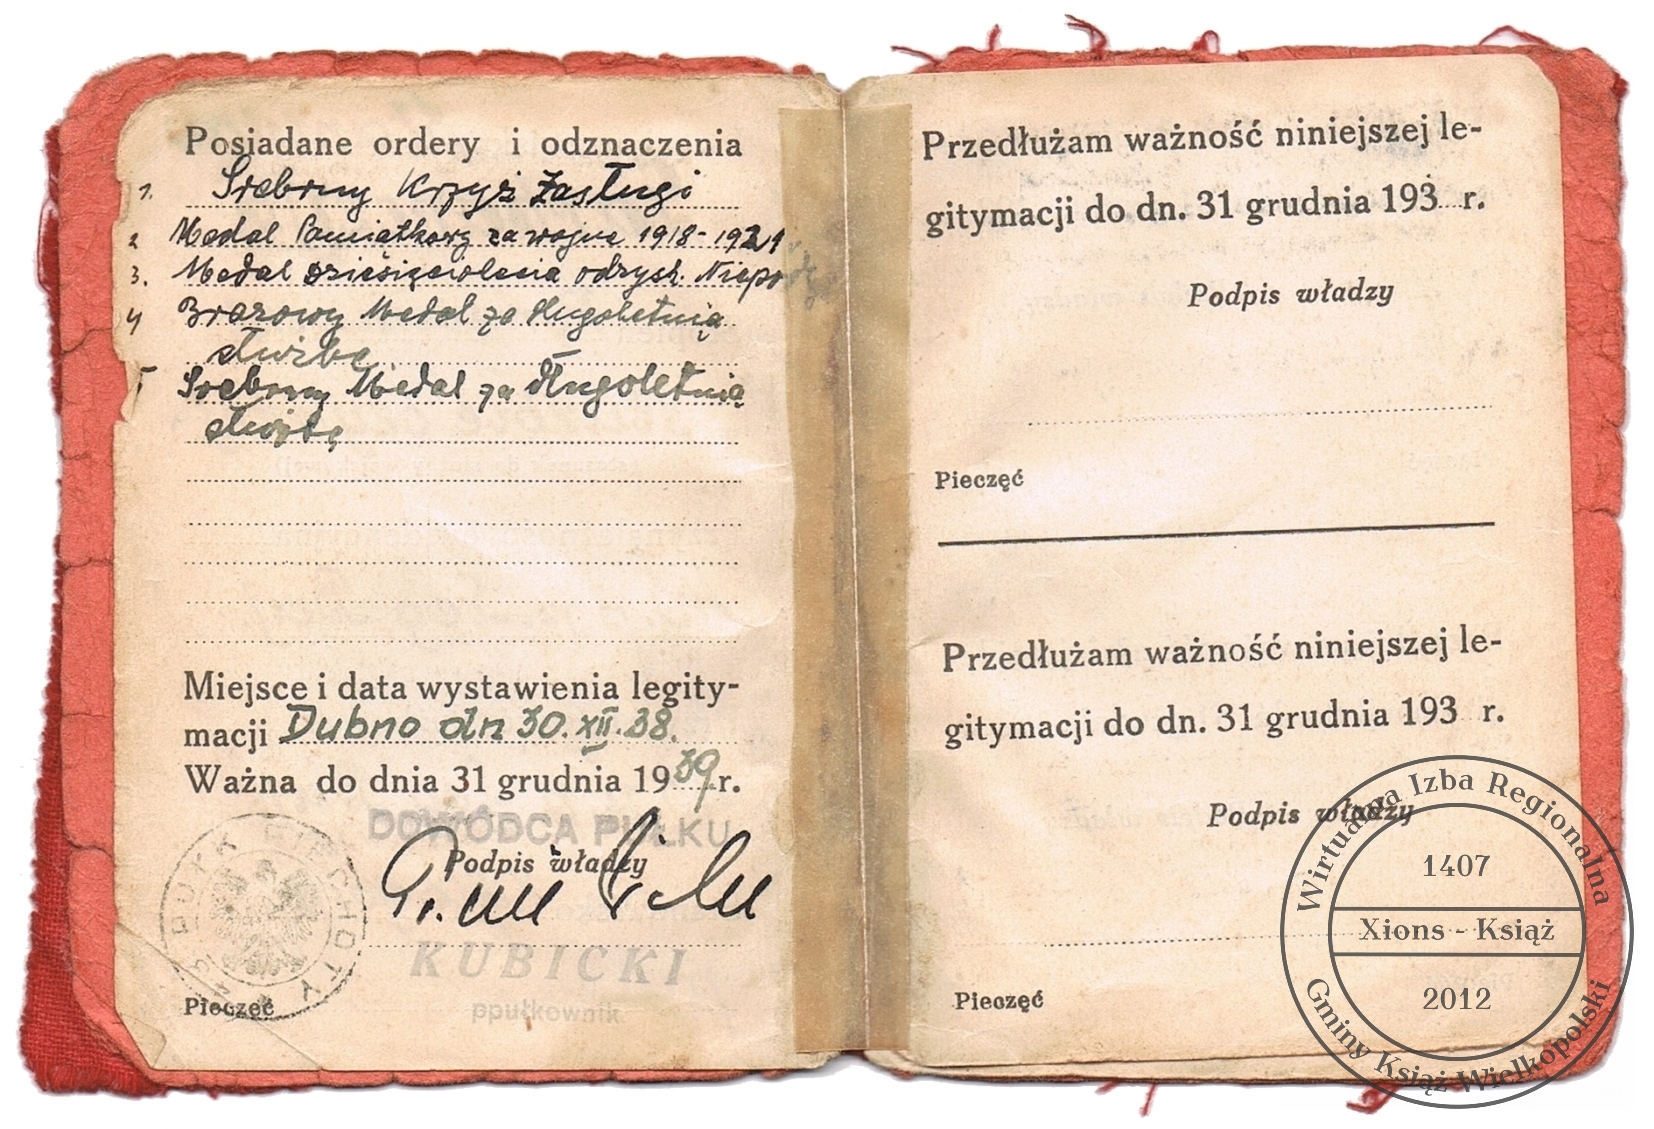 Posiadane ordery i odznaczenia
1. Srebrny Krzyż Zasługi
2 Medal Pamiątkowy za wojnę 1918-1921
3. Medal Dziesięciolecia odzysk. Niepodl
4 Brązowy Medal za długoletnią
służbę
5 Srebrny Medal za długoletnią
służbę
Miejsce i data wystawienia legity-
macji Dubno dn 30.XII.38.
Ważna do dnia 31 grudnia 1939 r.
DOWÓDCA PUŁKU
Podpis władzy
KUBICKI
ppułkownik
PUŁK PIECHOTY
Pieczęć
Przedłużam ważność niniejszej le-
gitymacji do dn. 31 grudnia 193 r.
Podpis władzy
Pieczęć
Przedłużam ważność niniejszej le-
gitymacji do dn. 31 grudnia 193 r.
Podpis władzy
Pieczęć
Wirtualna Izba Regionalna
1407
Xions - Książ
2012
Gminy Książ Wielkopolski